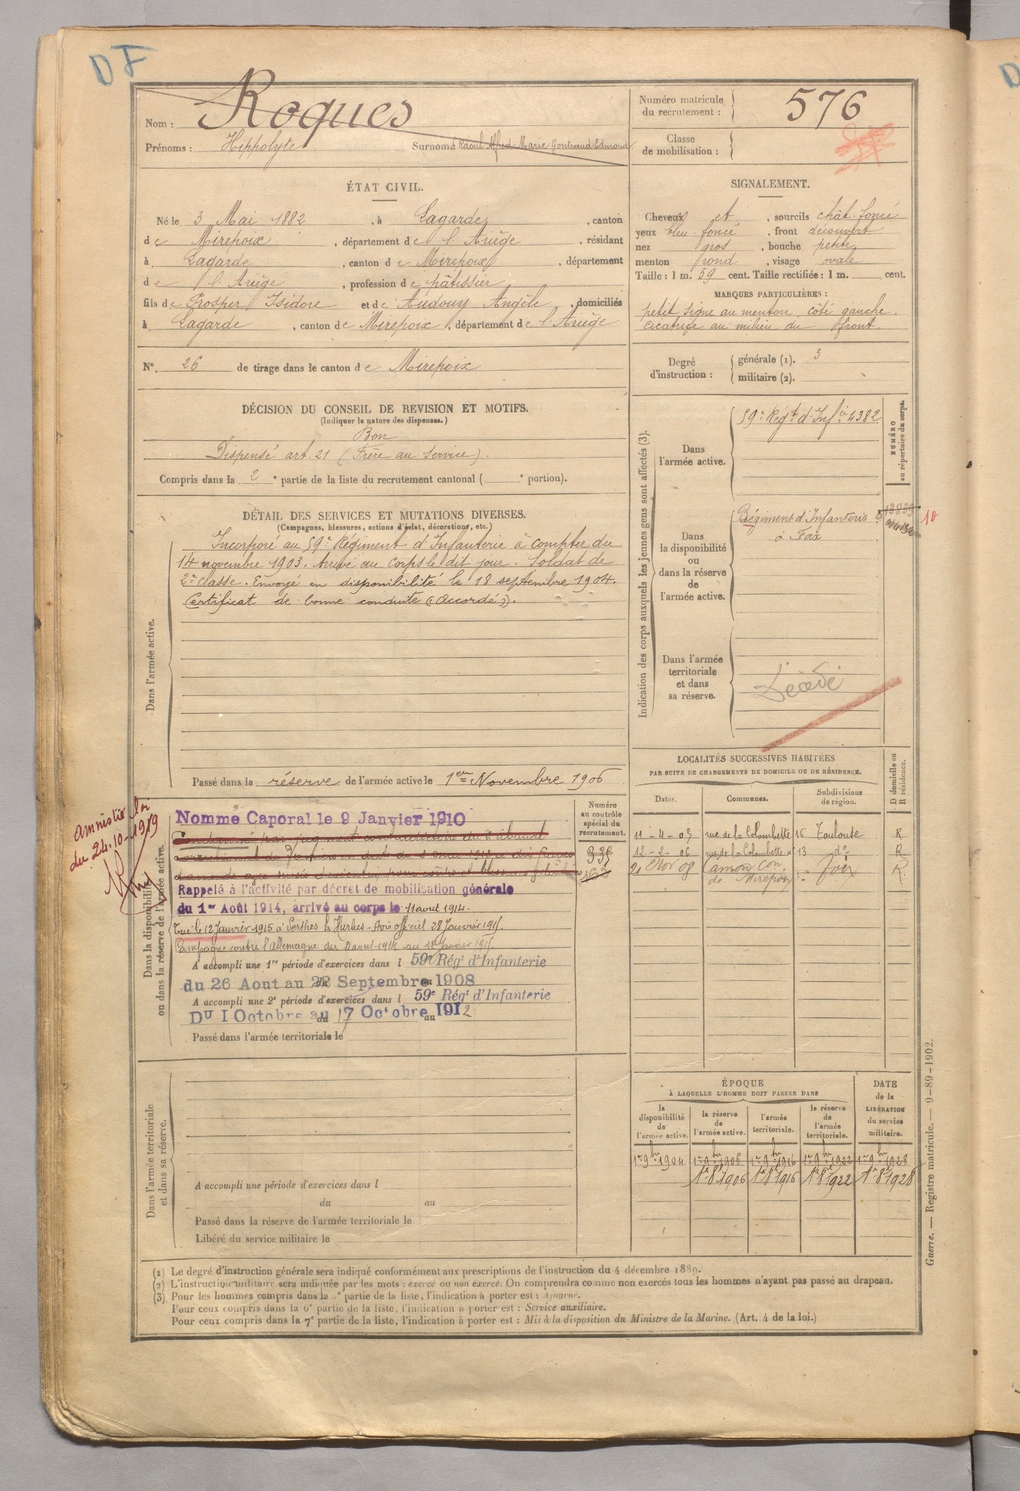 DF
Nom : Roques
Prénoms : Hippolyte Surnoms : Raoul Alfred Marie Gontrand Edmond
Numéro matricule du recrutement : 576
Classe de mobilisation :
ÉTAT CIVIL.
Né le 3 Mai 1882, à Lagarde, canton
de Mirepoix, département de l'Ariège, résidant
à Lagarde, canton de Mirepoix, département
de l'Ariège, profession de pâtissier
fils de Prosper Isidore et de Audouy Angèle, domiciliés
à Lagarde, canton de Mirepoix, département de l'Ariège
N° 26 de tirage dans le canton de Mirepoix
SIGNALEMENT.
Cheveux et, sourcils chât foncé
yeux bleu foncé, front découvert
nez gros, bouche petite
menton rond, visage ovale
Taille : 1 m. 59 cent. Taille rectifiée : 1 m. cent.
MARQUES PARTICULIÈRES :
petit signe au menton, côté gauche.
cicatrice au milieu du front.
Degré d'instruction : générale (1). 3
militaire (2).
DÉCISION DU CONSEIL DE REVISION ET MOTIFS.
(Indiquer la nature des dispenses.)
Bon
Dispensé art. 21 (Frère au service).
Compris dans la 2e partie de la liste du recrutement cantonal ( e portion).
DÉTAIL DES SERVICES ET MUTATIONS DIVERSES.
(Campagnes, blessures, actions d'éclat, décorations, etc.)
Dans l'armée active.
Incorporé au 59e Régiment d'Infanterie à compter du
14 novembre 1903. Arrivé au corps le dit jour. Soldat de
2e classe. Envoyé en disponibilité le 18 septembre 1904.
Certificat de bonne conduite "Accordé".
Passé dans la réserve de l'armée active le 1er Novembre 1906
Indication des corps auxquels les jeunes gens sont affectés (3).
NUMÉRO au répertoire du corps.
Dans l'armée active.
59e Régt d'Infie 4382
Dans la disponibilité ou dans la réserve de l'armée active.
Régiment d'Infanterie
à Foix
10
Dans l'armée territoriale et dans sa réserve.
Décédé
Amnistie Loi
du 24.10.1919
Dans la disponibilité ou dans la réserve de l'armée active.
Numéro au contrôle spécial du recrutement.
Nommé Caporal le 9 Janvier 1910
Rappelé à l'activité par décret de mobilisation générale
du 1er Août 1914, arrivé au corps le 11 avril 1914.
Tué le 12 Janvier 1915 à Perthes les Hurlus - Avis officiel 28 Janvier 1915.
Campagne contre l'Allemagne du 11 aout 1914 au 12 Janvier 1915
A accompli une 1re période d'exercices dans l 59e Rég' d'Infanterie
du 26 Aout au 22 Septembre 1908
A accompli une 2e période d'exercices dans l 59e Rég' d'Infanterie
Du 1 Octobre au 17 Octobre 1912
Passé dans l'armée territoriale le
LOCALITÉS SUCCESSIVES HABITÉES
PAR SUITE DE CHANGEMENTS DE DOMICILE OU DE RÉSIDENCE.
Dates. Communes. Subdivisions de région. D domicile ou R résidence.
11-4-03 rue de la Colombette 15 Toulouse R
12-2-06 rue de la Colombette 13 do R
de Mirepoix Foix R
ÉPOQUE
À LAQUELLE L'HOMME DOIT PASSER DANS
DATE de la LIBÉRATION du service militaire.
la disponibilité de l'armée active. la réserve de l'armée active. l'armée territoriale. la réserve de l'armée territoriale.
1er 9bre 1904 1er 9bre 1906 1er 9bre 1916 1er 9bre 1922 1er 9bre 1928
1er 8bre 1906 1er 8bre 1916 1er 8bre 1922 1er 8bre 1928
Dans l'armée territoriale et dans sa réserve.
A accompli une période d'exercices dans l
du au
Passé dans la réserve de l'armée territoriale le
Libéré du service militaire le
Guerre. — Registre matricule. — 9-89-1902.
(1) Le degré d'instruction générale sera indiqué conformément aux prescriptions de l'instruction du 4 décembre 1889.
(2) L'instruction militaire sera indiquée par les mots : exercé ou non exercé. On comprendra comme non exercés tous les hommes n'ayant pas passé au drapeau.
(3) Pour les hommes compris dans la partie de la liste, l'indication à porter est : Ajourné.
Pour ceux compris dans la 6e partie de la liste, l'indication à porter est : Service auxiliaire.
Pour ceux compris dans la 7e partie de la liste, l'indication à porter est : Mis à la disposition du Ministre de la Marine. (Art. 4 de la loi.)